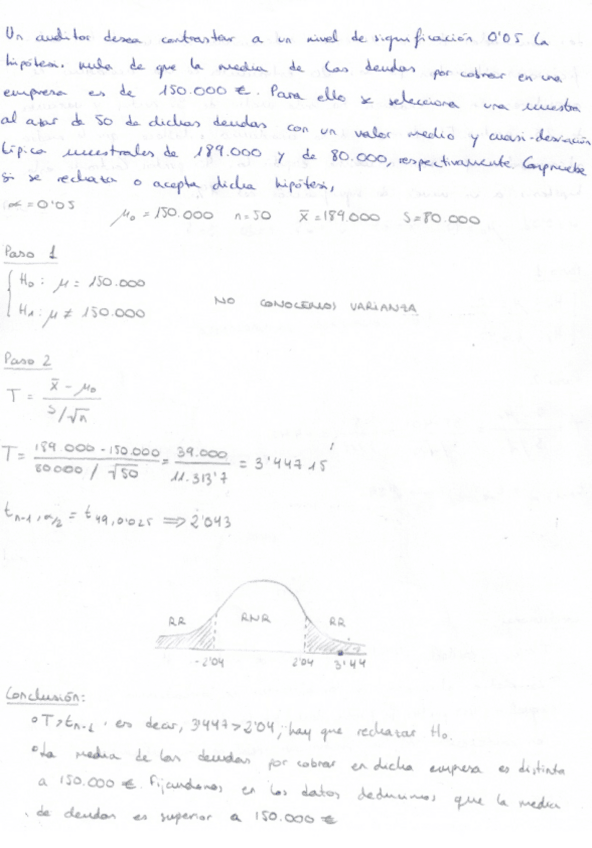 Un auditor desea contrastar a un nivel de significación 0'05 la
hipótesis nula de que la media de las deudas por cobrar en una
empresa es de 150.000 €. Para ello se selecciona una muestra
al azar de 50 de dichas deudas con un valor medio y cuasi-desviación
típica muestrales de 189.000 y de 80.000, respectivamente. Compruebe
si se rechaza o acepta dicha hipótesis,
α = 0'05 μ₀ = 150.000 n = 50 x̄ = 189.000 S = 80.000
Paso 1
H₀: μ = 150.000
H₁: μ ≠ 150.000
NO CONOCEMOS VARIANZA
Paso 2
T = (x̄ - μ₀) / (S/√n)
T = (189.000 - 150.000) / (80000 / √50) = 39.000 / 11.313'7 = 3'44715
t n-1, α/2 = t 49, 0'025 ⇒ 2'043
RR RNR RR
-2'04 2'04 3'44
Conclusión:
T > t n-1, es decir, 3'447 > 2'04, hay que rechazar H₀.
La media de las deudas por cobrar en dicha empresa es distinta
a 150.000 €. Fijándonos en los datos deducimos que la media
de deudas es superior a 150.000 €